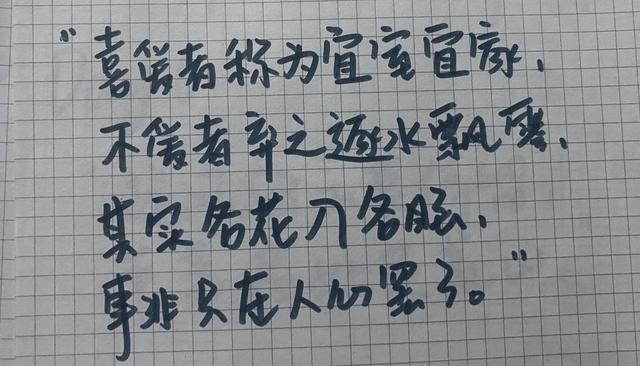 “喜爱者称为宜室宜家，
不爱者弃之逐水飘零，
其实各花入各眼，
事非只在人心罢了。”